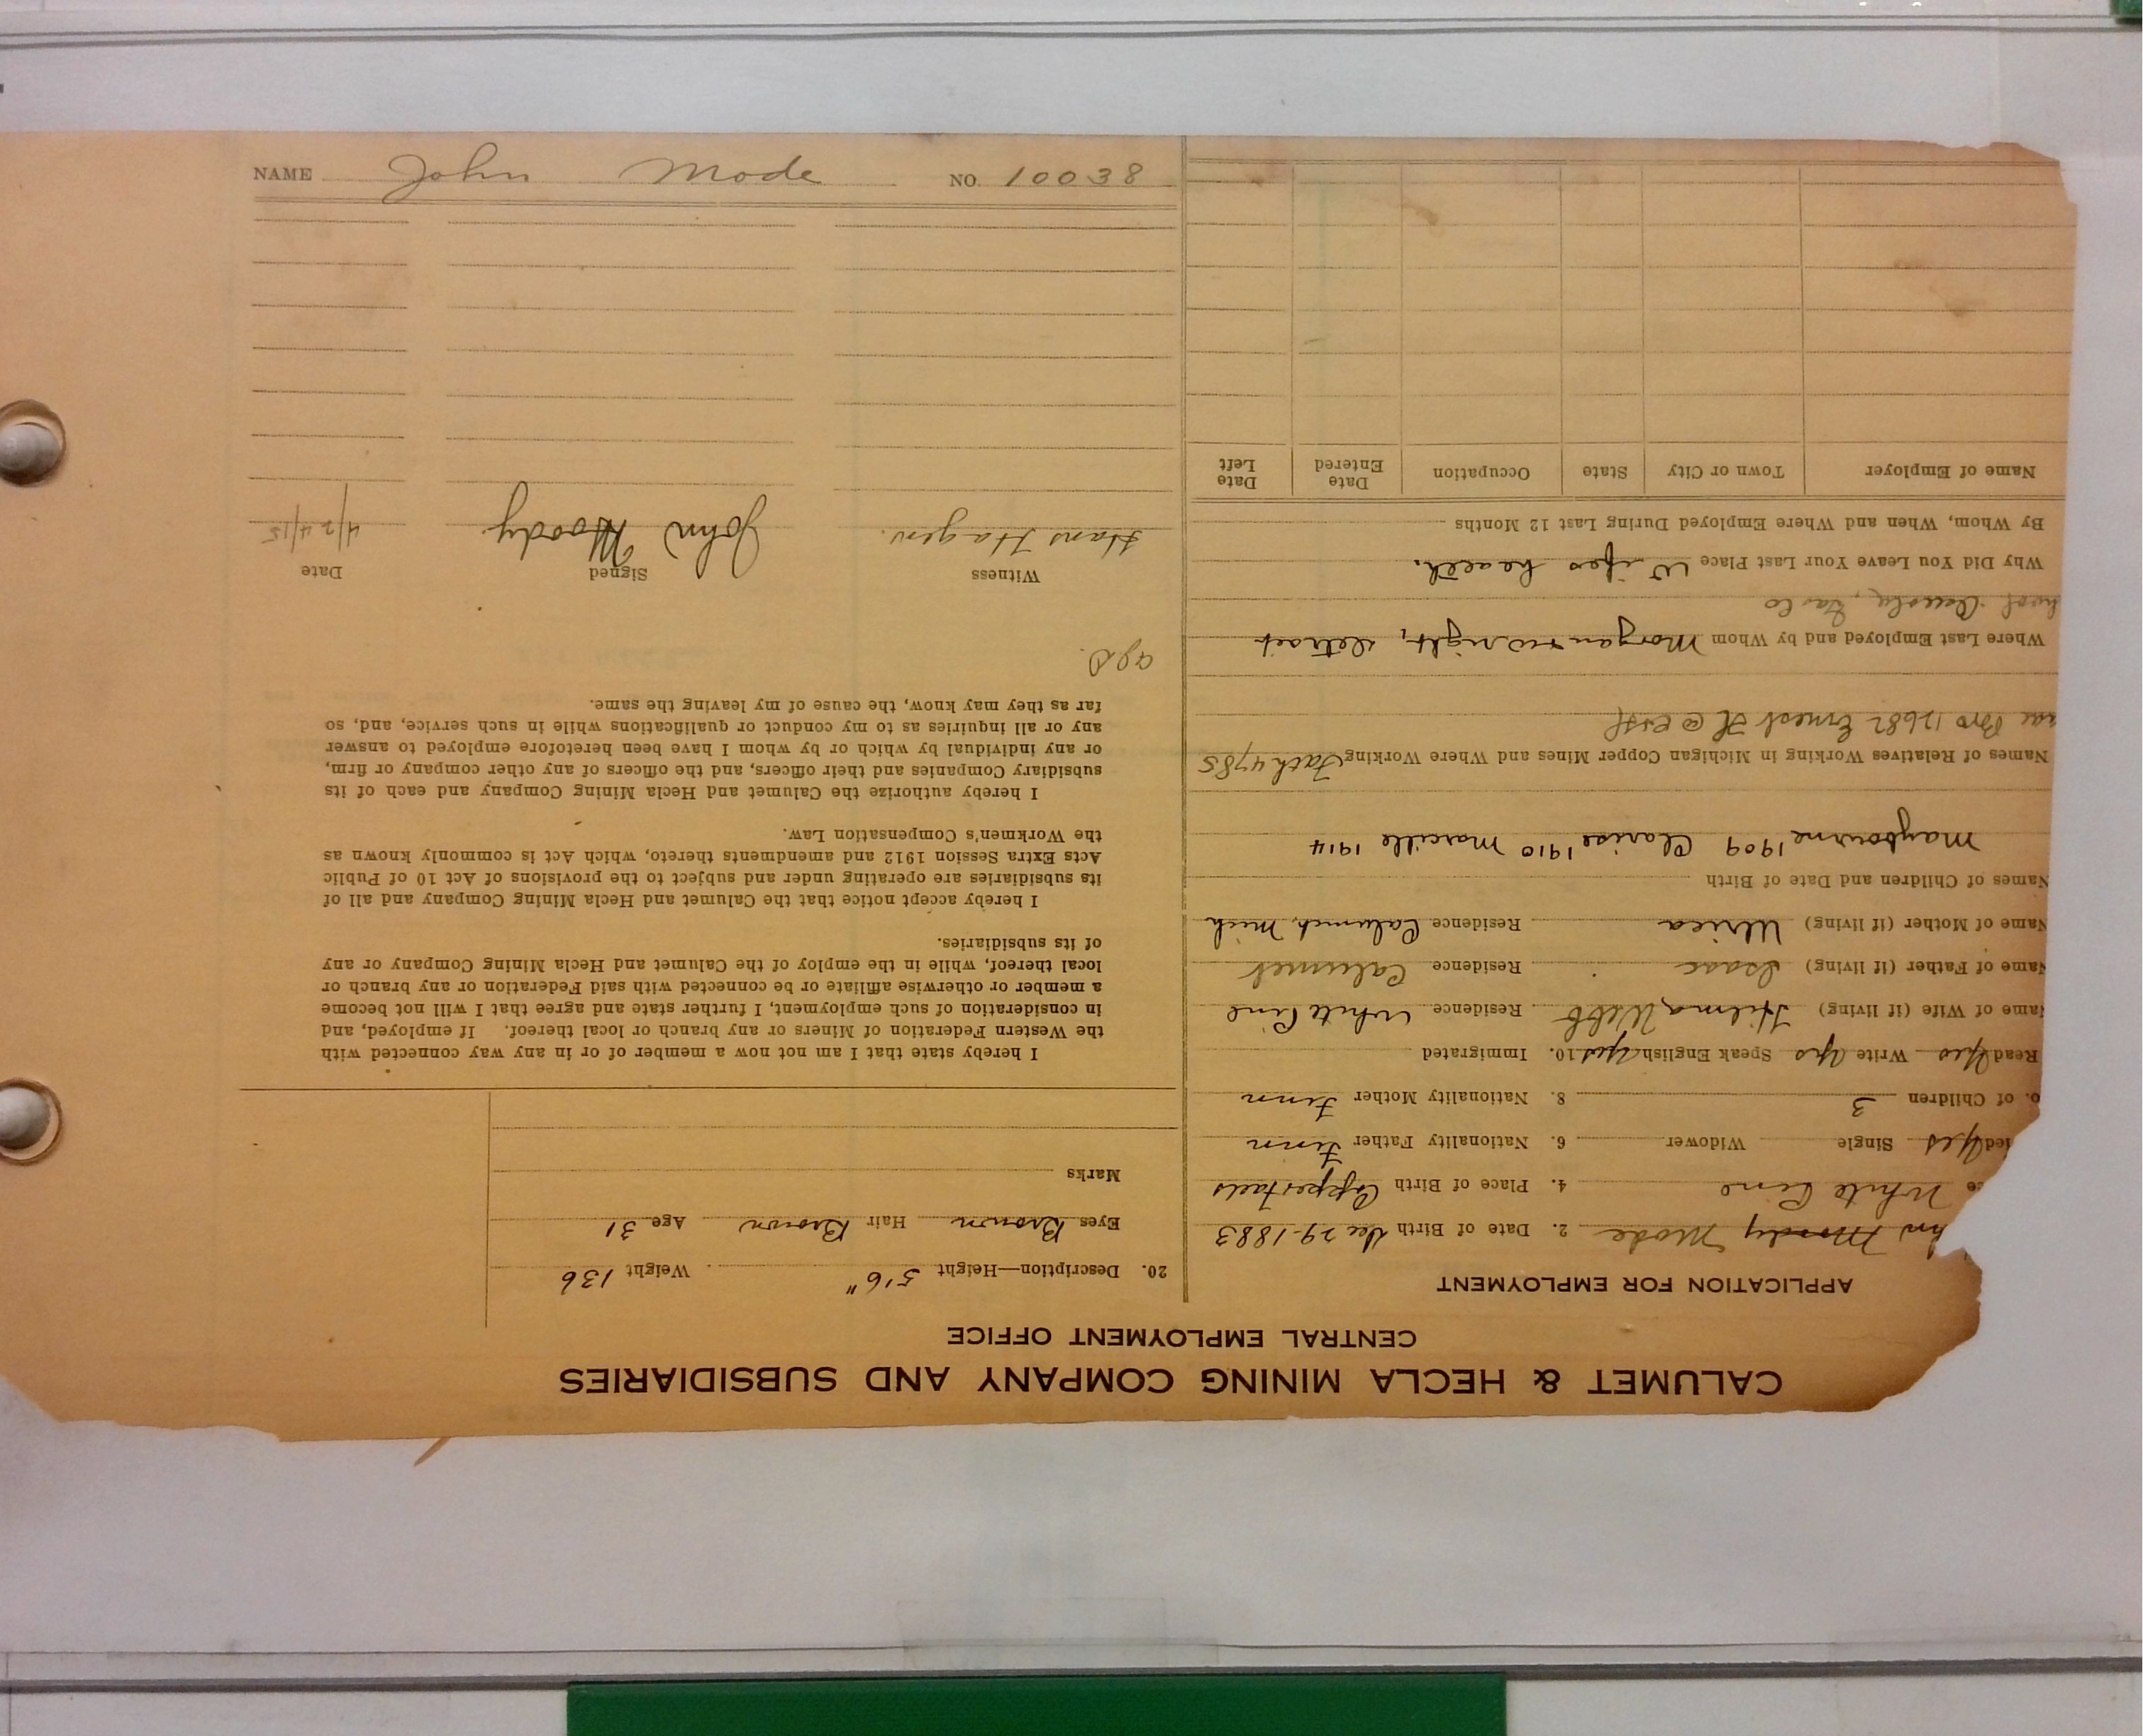 CALUMET & HECLA MINING COMPANY AND SUBSIDIARIES
CENTRAL EMPLOYMENT OFFICE
APPLICATION FOR EMPLOYMENT
hn Moody Mode 2. Date of Birth Dec 29-1883
ce White Pine 4. Place of Birth Copper Falls
ied Yes Single Widower 6. Nationality Father Finn
o. of Children 3 8. Nationality Mother Finn
Read Yes Write Yes Speak English Yes 10. Immigrated
Name of Wife (if living) Hilma Webb Residence White Pine
Name of Father (if living) Isaac Residence Calumet
Name of Mother (if living) Ulrica Residence Calumet, Mich
Names of Children and Date of Birth
Maybourne 1909 Clarise 1910 Marcille 1914
Names of Relatives Working in Michigan Copper Mines and Where Working Fath 4785
Bro 12682 Ernest H @
Where Last Employed and by Whom Morgan + Wright, Detroit
Osceola,
Why Did You Leave Your Last Place Wifes health.
By Whom, When and Where Employed During Last 12 Months
Name of Employer Town or City State Occupation Date Entered Date Left
20. Description—Height 5'6" Weight 136
Eyes Brown Hair Brown Age 31
Marks
I hereby state that I am not now a member of or in any way connected with
the Western Federation of Miners or any branch or local thereof. If employed, and
in consideration of such employment, I further state and agree that I will not become
a member or otherwise affiliate or be connected with said Federation or any branch or
local thereof, while in the employ of the Calumet and Hecla Mining Company or any
of its subsidiaries.
I hereby accept notice that the Calumet and Hecla Mining Company and all of
its subsidiaries are operating under and subject to the provisions of Act 10 of Public
Acts Extra Session 1912 and amendments thereto, which Act is commonly known as
the Workmen's Compensation Law.
I hereby authorize the Calumet and Hecla Mining Company and each of its
subsidiary Companies and their officers, and the officers of any other company or firm,
or any individual by which or by whom I have been heretofore employed to answer
any or all inquiries as to my conduct or qualifications while in such service, and, so
far as they may know, the cause of my leaving the same.
Witness Signed Date
Hans Hagen. John Moody 4/24/15
NAME John Mode NO. 10038